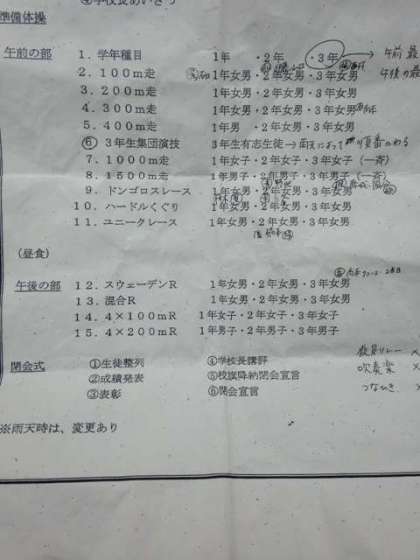 ④学校長あいさつ
準備体操
午前の部 1. 学年種目 1年 ・2年 ・3年 → 午前 最
2. 100m走 1年女男・2年女男・3年女男 午後の最
3. 200m走 1年女男・2年女男・3年女男
4. 300m走 1年女男・2年女男・3年女男
5. 400m走 1年男 ・2年女男・3年女男
⑥ 3年生集団演技 3年生有志生徒→
7. 1000m走 1年女子・2年女子・3年女子(一斉)
8. 1500m走 1年男子・2年男子・3年男子(一斉)
9. ドンゴロスレース 1年女男・2年女男・3年女男
10. ハードルくぐり 1年女男・2年女男・3年女男
11. ユニークレース 1年女男・2年女男・3年女男
(昼食)
午後の部 12. スウェーデンR 1年女男・2年女男・3年女男
13. 混合R 1年女男・2年女男・3年女男
14. 4×100mR 1年女子・2年女子・3年女子
15. 4×200mR 1年男子・2年男子・3年男子
閉会式 ①生徒整列 ④学校長講評 教員リレー ×
②成績発表 ⑤校旗降納閉会宣言 吹奏楽 ×
③表彰 ⑥閉会宣言 つなひき ×
※雨天時は、変更あり